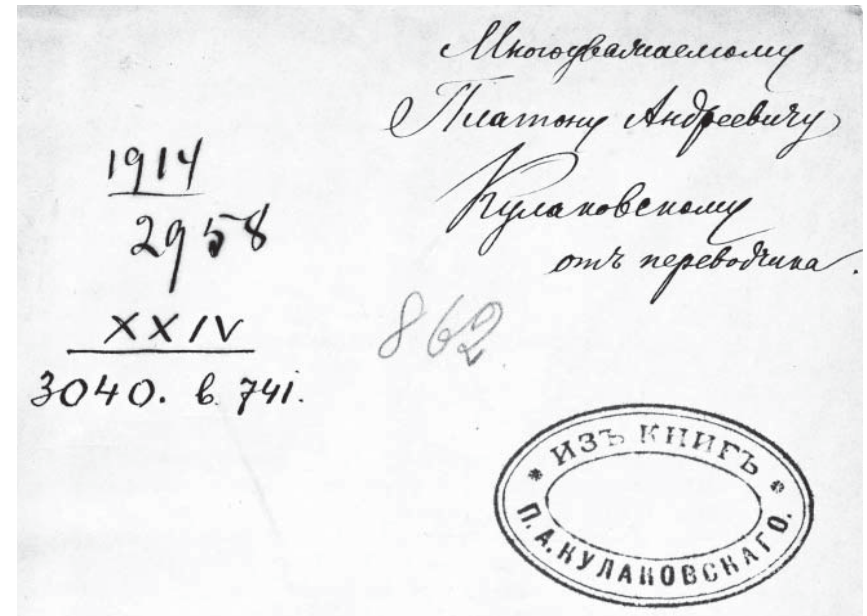 Многоуважаемому
Платону Андреевичу
Кулаковскому
отъ переводчика.
1914
2958
XXIV
3040. в. 741.
862
* ИЗЪ КНИГЪ *
П. А. КУЛАКОВСКАГО.